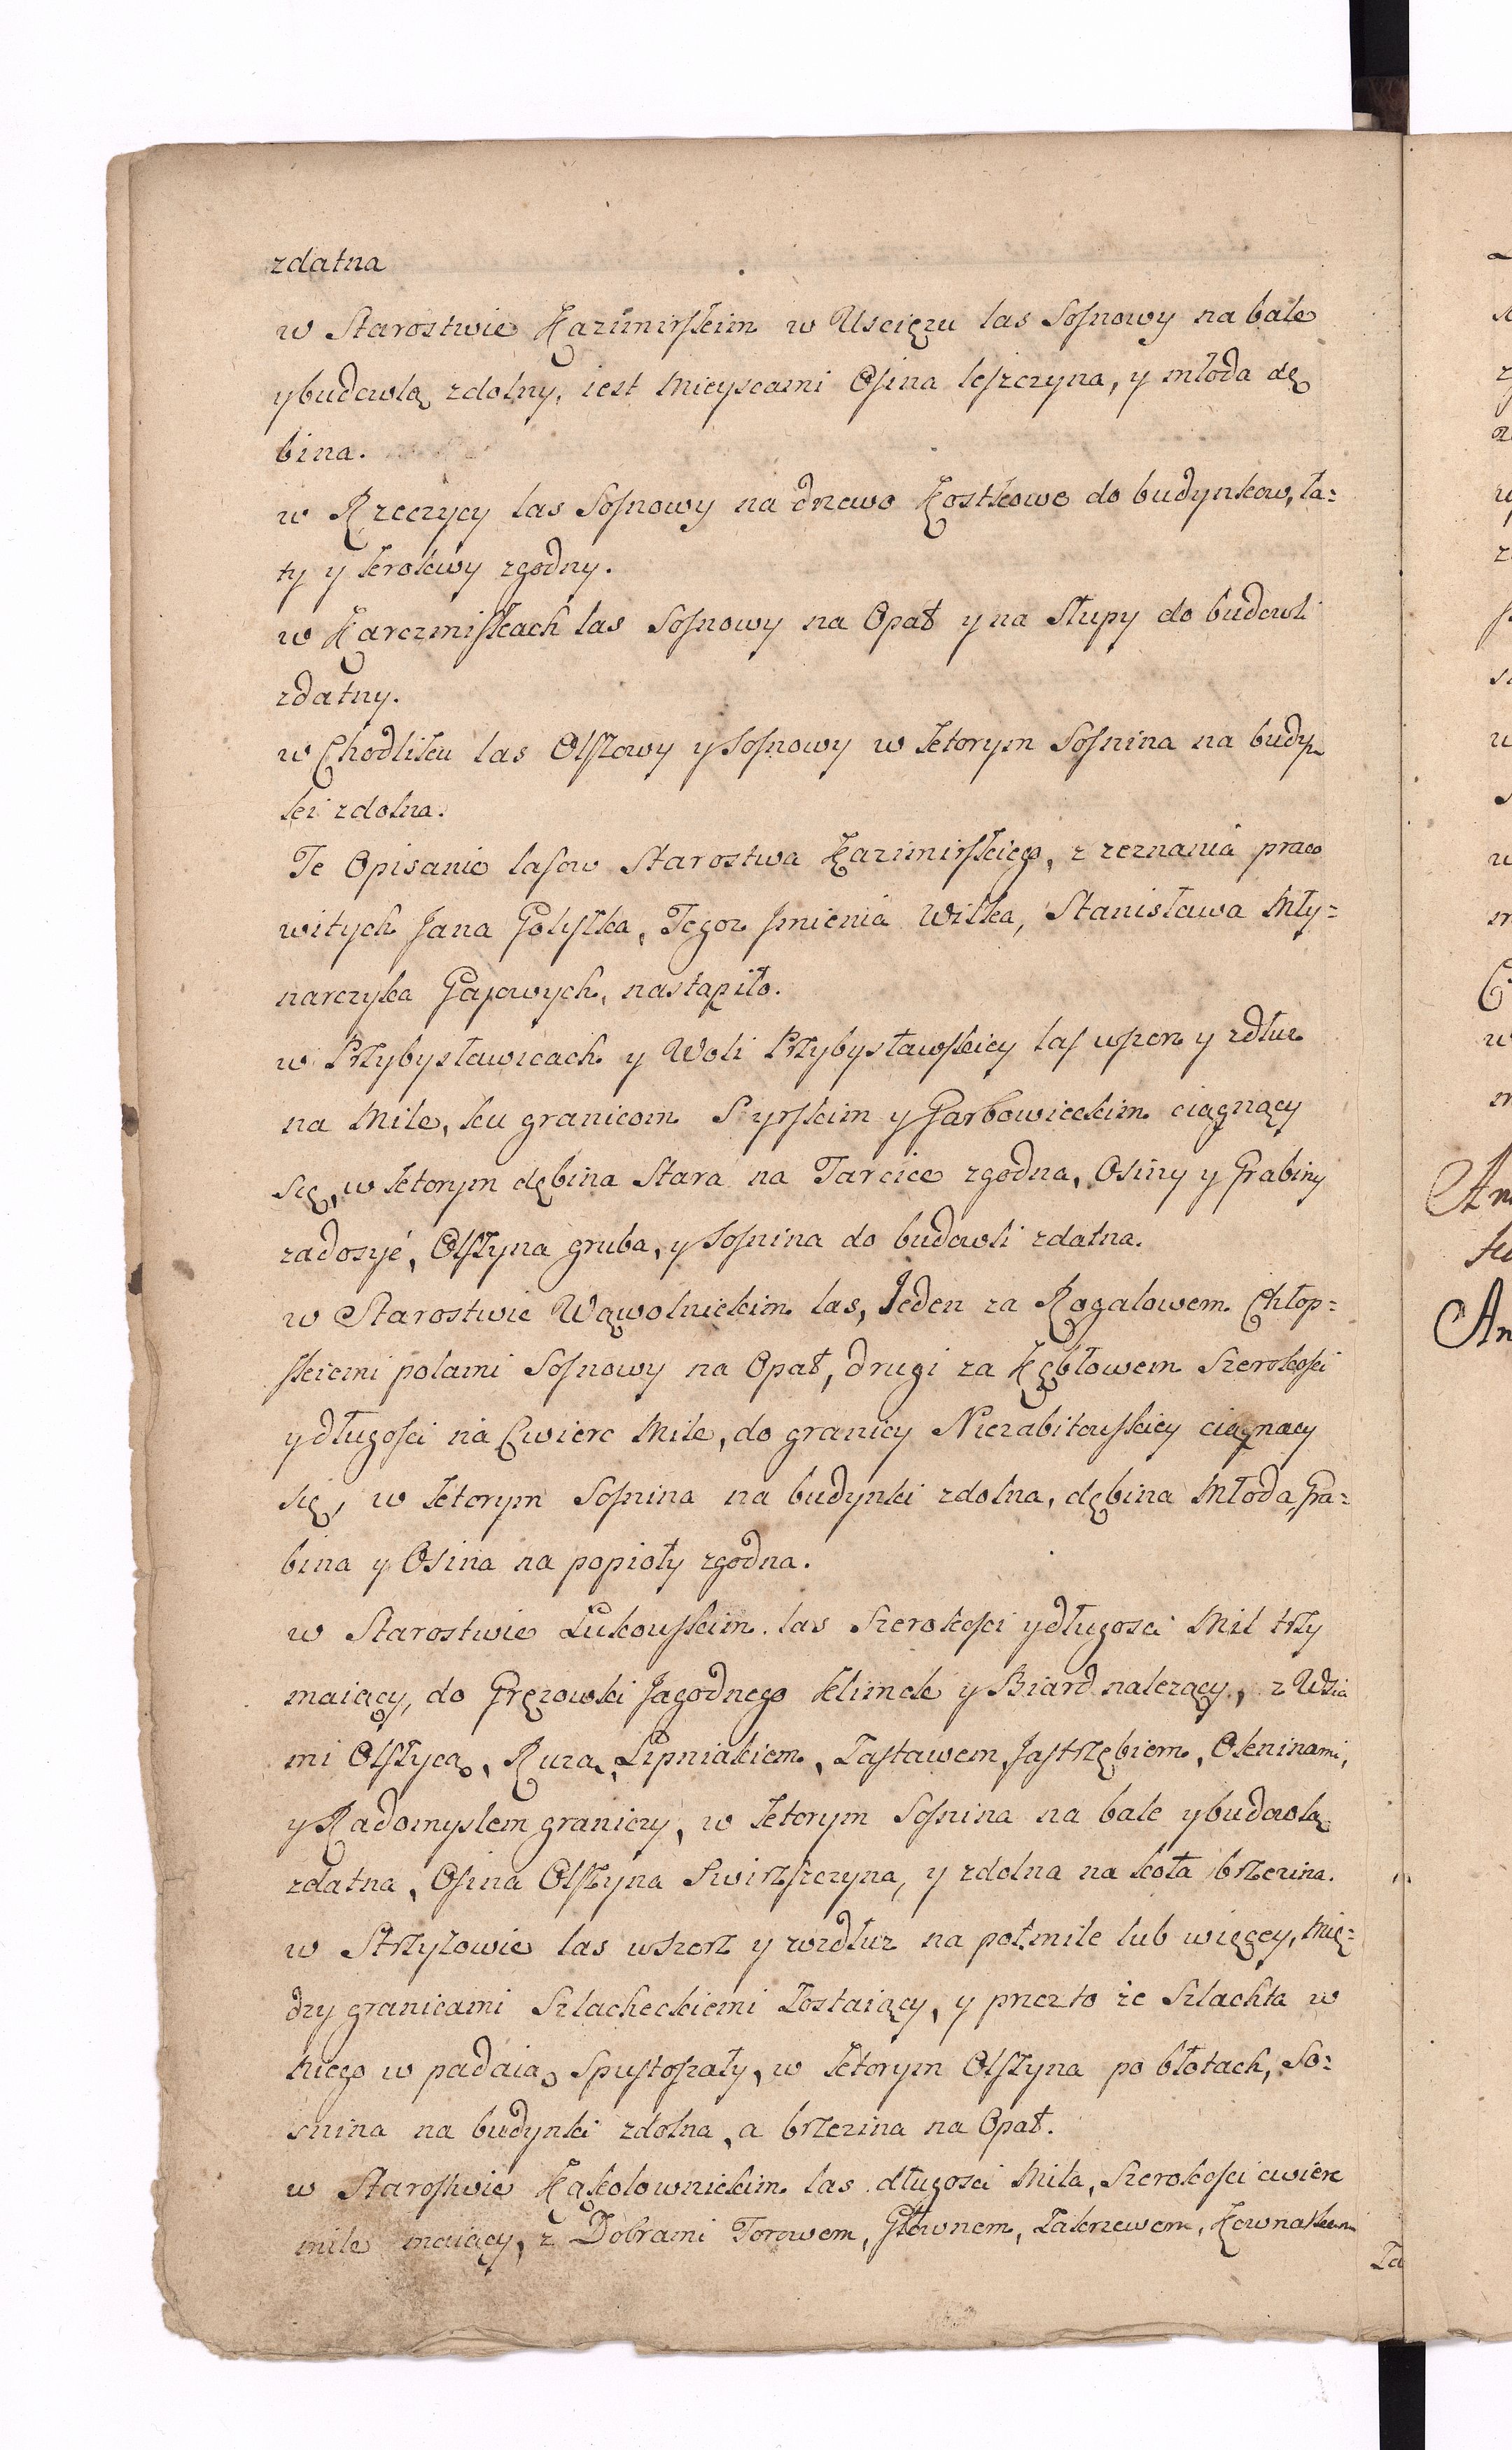 zdatna
w Starostwie Kazimirskim w Uscięzu las Sosnowy na bale
y budowlą zdolny, iest Mieyscami Osina leszczyna, y młoda dę
bina.
w Rzeczycy las Sosnowy na drzewo Kostkowe do budynkow, ła=
ty y krokwy zgodny.
w Karczmiskach las Sosnowy na Opał y na Słupy do budowli
zdatny.
w Chodliku las Olszowy y Sosnowy w ktorym Sosnina na budyn
ki zdolna.
Te Opisanie lasow Starostwa Kazimirskiego, z zeznania praco
witych Jana Goliszka, Tegoz Jmienia Wilka, Stanisława Mły=
narczyka Gajowych, nastąpiło.
w Przybysławicach y Woli Przybysławskiey las wszerz y zdłuz
na Mile, ku granicom y Garbowieckim ciągnący
się, w ktorym dębina Stara na Tarcice zgodna, Osiny y Grabiny
zadosyć, Olszyna gruba, y Sosnina do budowli zdatna.
w Starostwie Wąwolnickim las, Jeden za Rogalowem Chłop=
skiemi polami Sosnowy na Opał, drugi za Kębłowem Szerokości
y długości na Cwierc Mile, do granicy Niezabitowskiey ciągnący
się, w ktorym Sosnina na budynki zdolna, dębina Młoda, Gra=
bina y Osina na popioły zgodna.
w Starostwie Łukowskim las Szerokości y długosci Mil trzy
maiący, do Gręzowki Jagodnego Klimek y Biard nalezący, z Wsia
mi Olszycą, Ruzą, Lipniakiem, Zastawem, Jastrzębiem, Okninami,
y Radomyslem graniczy, w ktorym Sosnina na bale y budowlą
zdatna, Osina Olszyna Swirszczyna, y zdolna na koła brzezina.
w Strzyzowie las wszerz y wzdłuz na poł mile lub więcey, Mię=
dzy granicami Szlacheckiemi Zostaiący, y przez to że Szlachta w
niego w padaią, Spustoszały, w ktorym Olszyna po błotach, So=
snina na budynki zdolna, a brzezina na Opał.
w Starostwie Kąkolownickim las długosci Mila, Szerokości cwierc
mile maiący, z Dobrami Torowem, Głownem, Zakrzewem, Kownatkami
Za